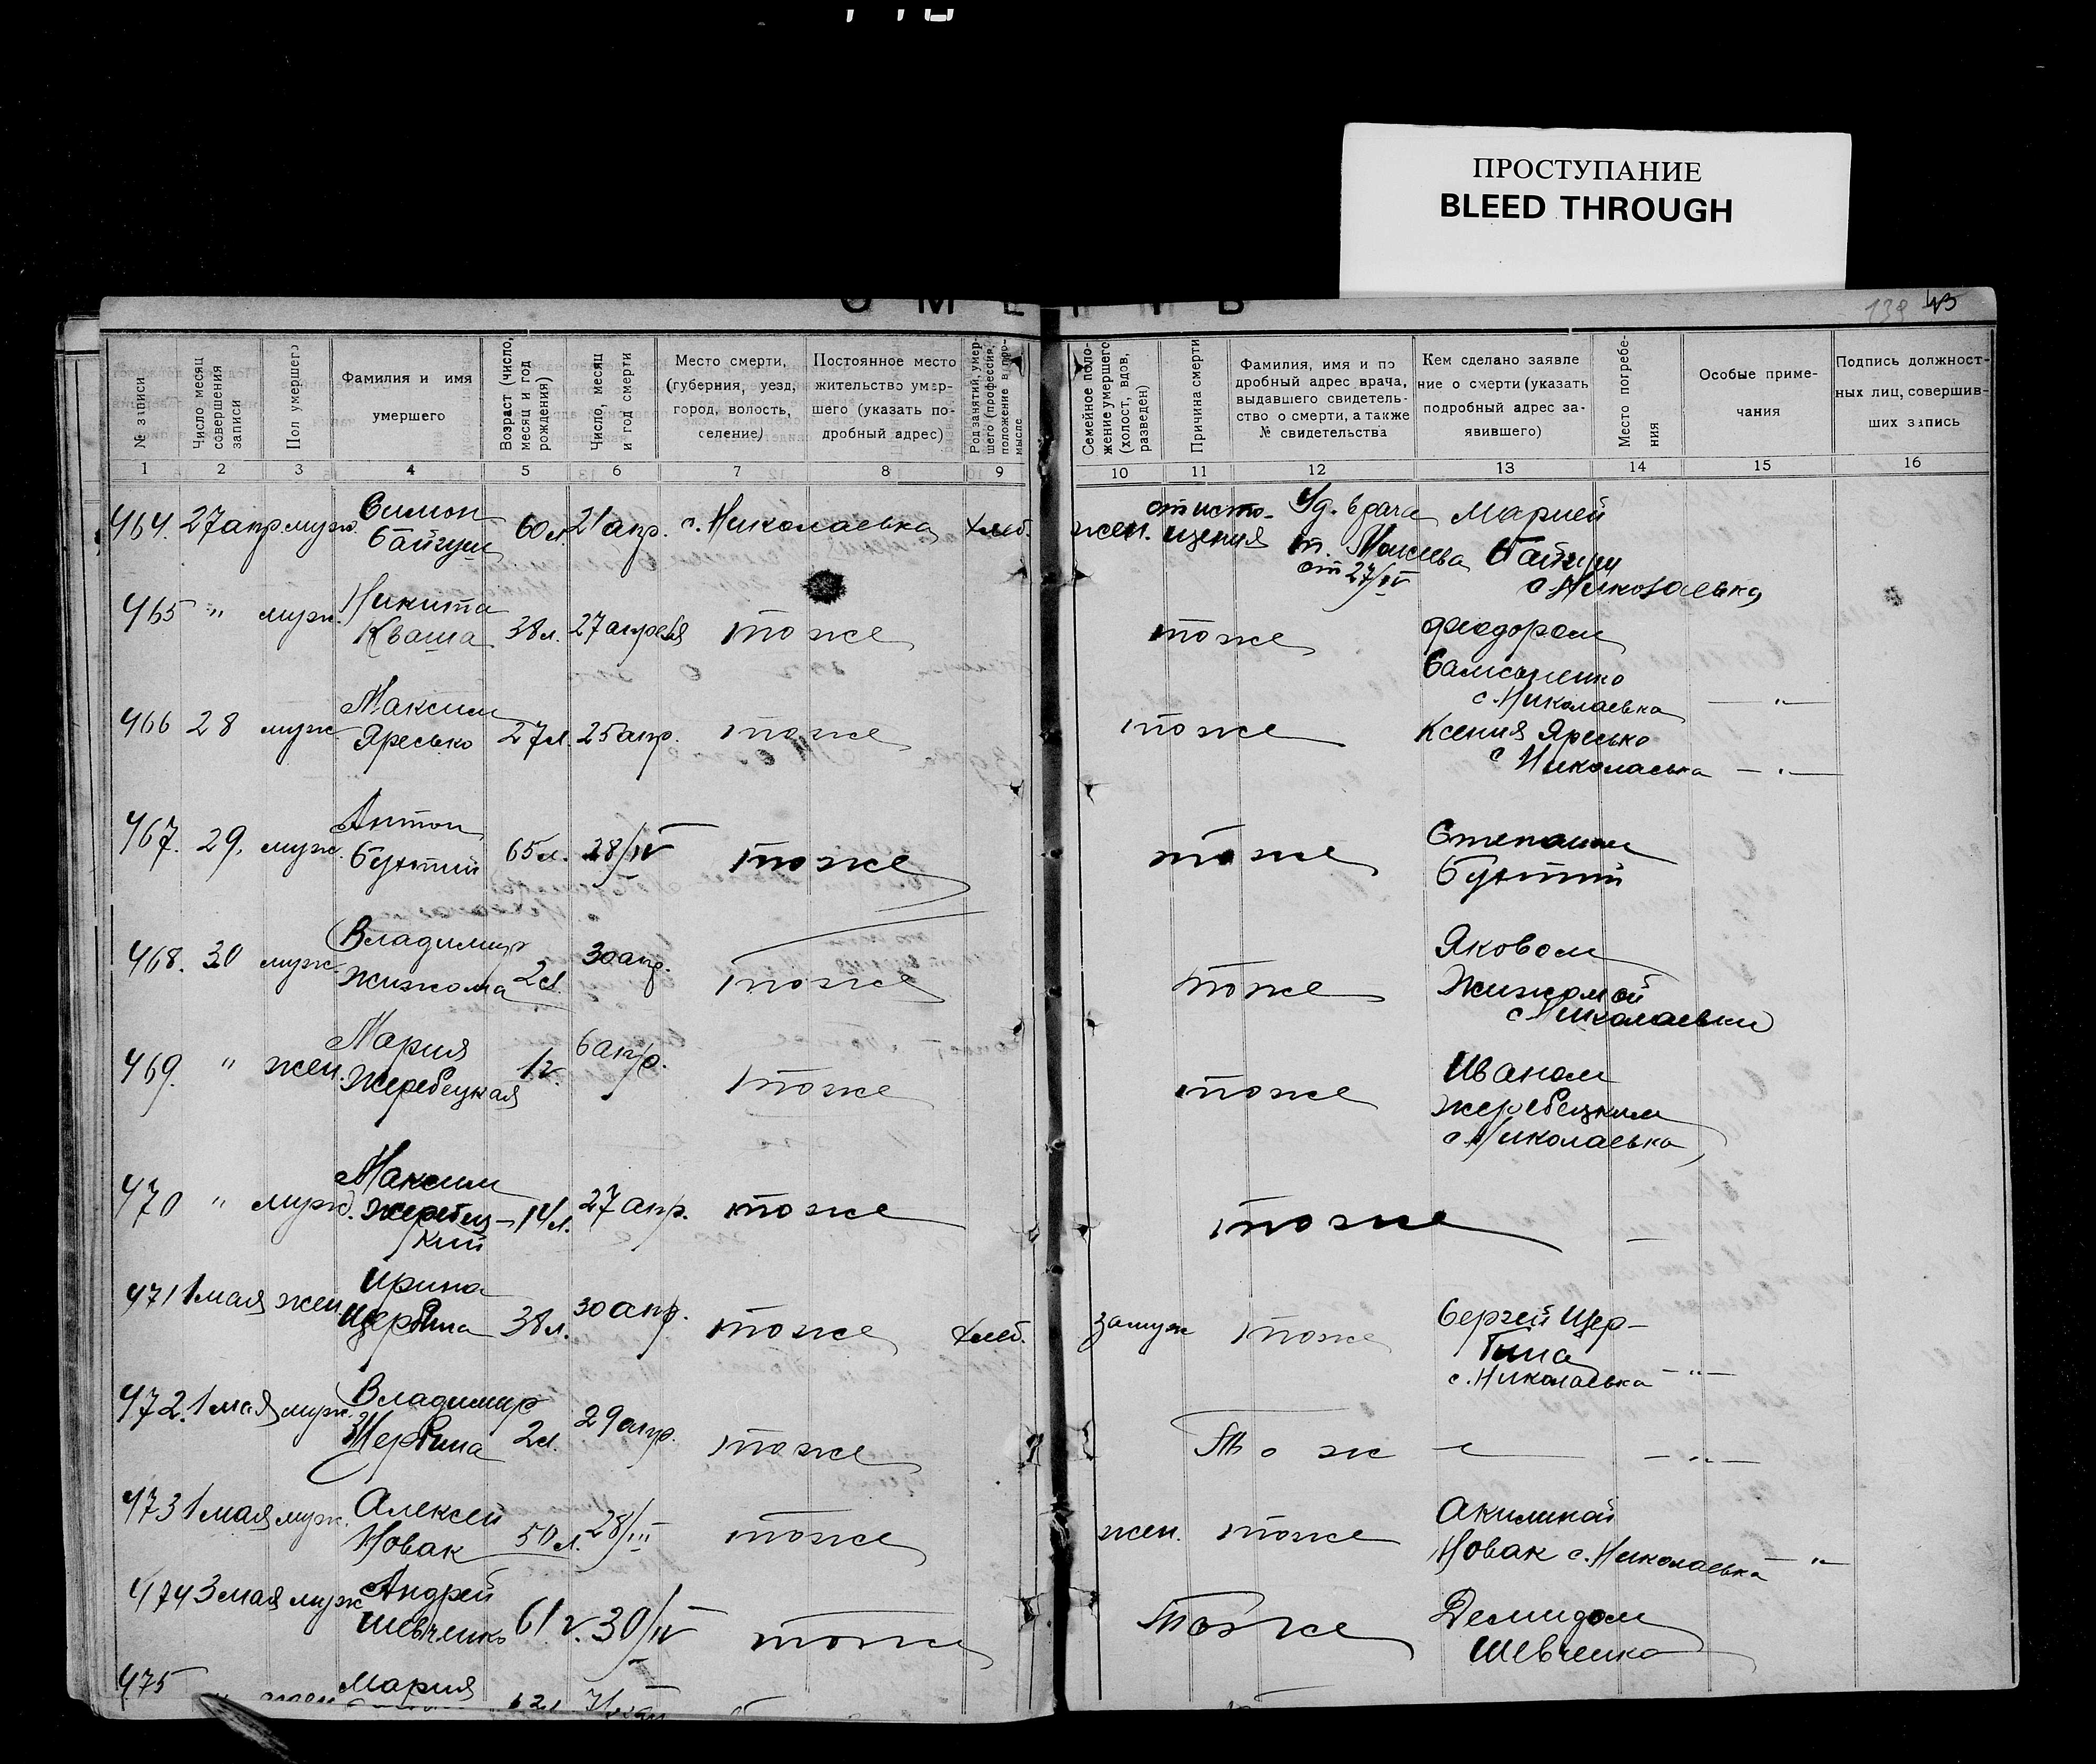 ПРОСТУПАНИЕ
BLEED THROUGH
138 43
№ записи
Число месяц совершения записи
Пол умершего
Фамилия и имя
умершего
Возраст (число, месяц и год рождения)
Число, месяц и год смерти
Место смерти,
(губерния, уезд,
город, волость,
селение)
Постоянное место
жительство умер-
шего (указать по-
дробный адрес)
Род занятий, умер-
шего (профессия,
положение в про-
мысле
Семейное поло-
жение умершего
(холост, вдов,
разведен)
Причина смерти
Фамилия, имя и по
дробный адрес врача,
выдавшего свидетель-
ство о смерти, а также
№ свидетельства
Кем сделано заявле
ние о смерти (указать
подробный адрес за-
явившего)
Место погребе-
ния
Особые приме-
чания
Подпись должност-
ных лиц, совершив-
ших запись
1 2 3 4 5 6 7 8 9 10 11 12 13 14 15 16
464. 27 апр. муж. Симон 60 л. 21 апр. с. Николаевка хлеб. жен. от исто- Уд. врача Марией
Байгуш щения от 27/IV Байгуш
с. Николаевка
465 " муж. Никита 38 л. 27 апреля тоже тоже Феодором
Кваша
с. Николаевка — " —
466 28 муж Максим 27 л. 25 апр. тоже тоже Ксения Яресько
Яресько с Николаевка — " —
467. 29. муж. Антон 65 л. 28/IV тоже тоже Степаном
468. 30 муж. Владимир 2 л. 30 апр. тоже тоже Яковом
Жижома Жижомой
с Николаевки
469. " жен. Мария 1 г. 6 апр. тоже тоже Иваном
Жеребецкая Жеребецким
с. Николаевка
470 " муж. Максим 14 л. 27 апр. тоже тоже
Жеребец-
кий
471 1 мая жен. Ирина 38 л. 30 апр. тоже хлеб. замуж тоже Сергей Щер-
Щербина бина
с. Николаевка — " —
472. 1 мая муж. Владимир 2 л. 29 апр. тоже То ж е — " —
Щербина
473 1 мая муж. Алексей 50 л. 28/III тоже жен. тоже Акилиной
Новак Новак с. Николаевка "
474 3 мая муж Андрей 61 г. 30/IV тоже Тоже Демидом
Шевченко Шевченко
475 Мария